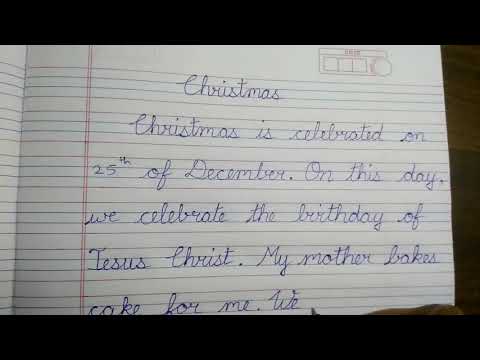 Christmas
Christmas is celebrated on
25th of December. On this day,
we celebrate the birthday of
Jesus Christ. My mother bakes
cake for me. We